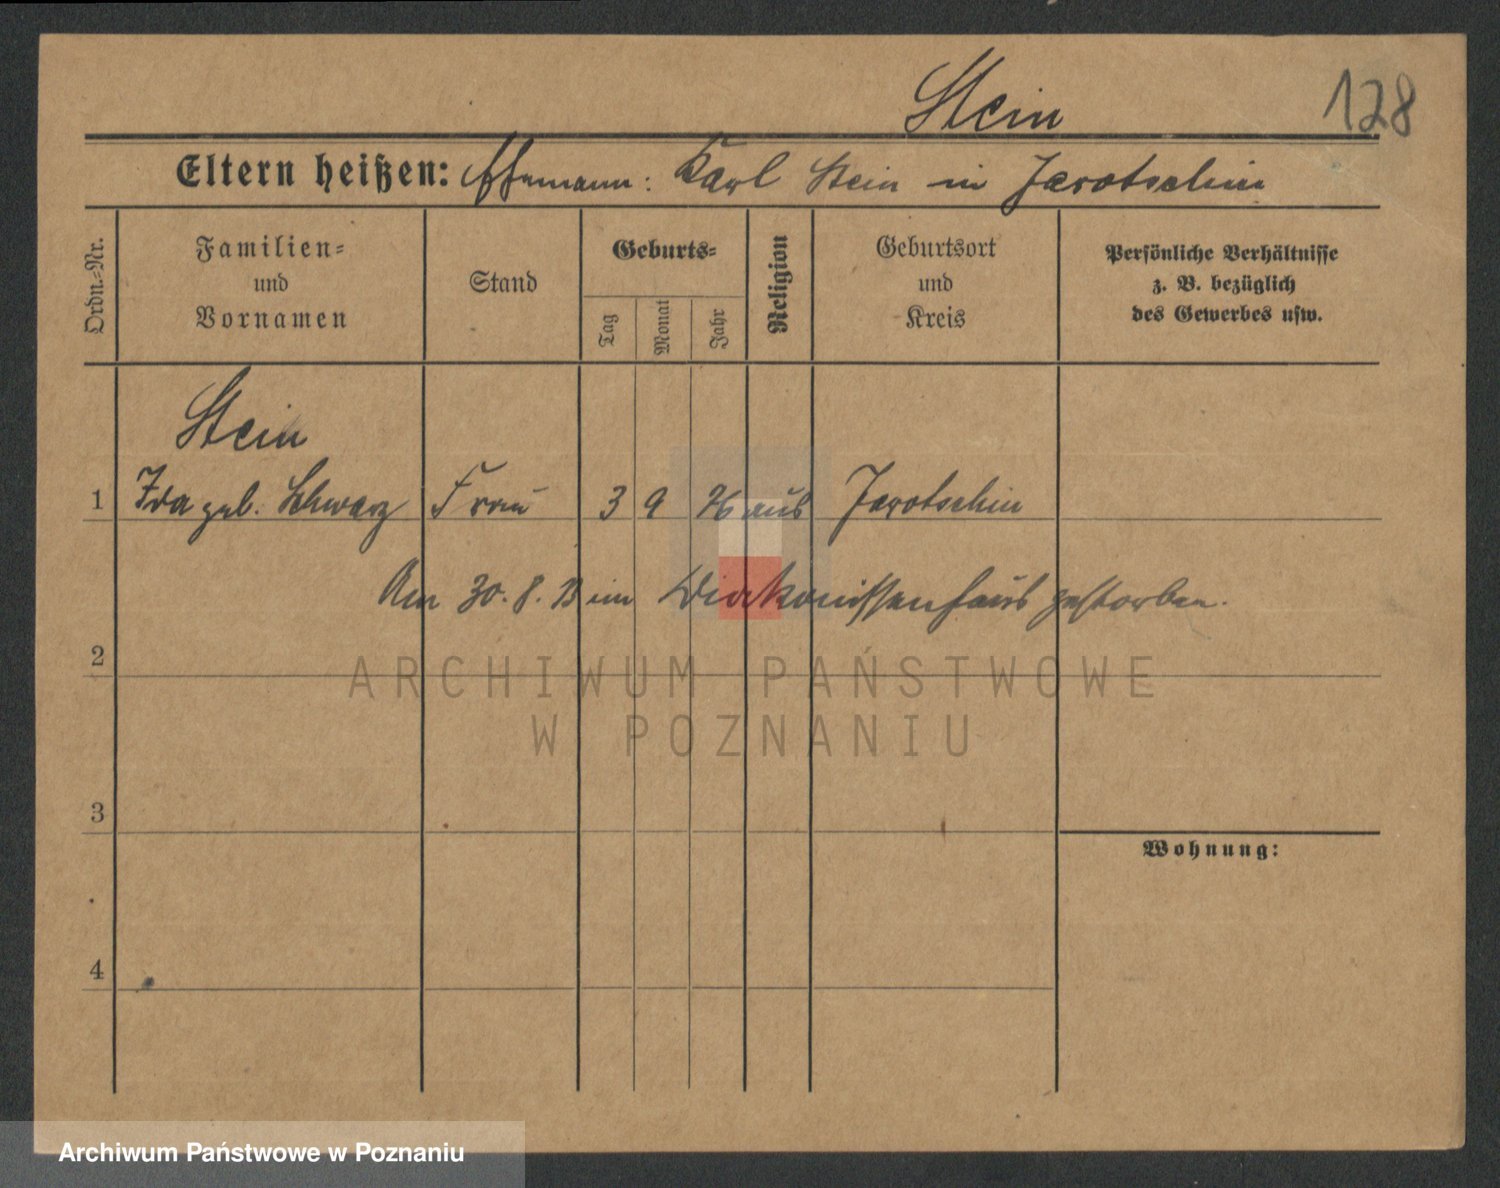 Stein 128
Eltern heißen: Ehemann: Karl Stein in Jarotschin
Ordn.-Nr.
Familien-
und
Vornamen
Stand
Geburts-
Tag
Monat
Jahr
Religion
Geburtsort
und
Kreis
Persönliche Verhältnisse
z. B. bezüglich
des Gewerbes usw.
Stein
1 Ida geb. Schwarz Frau 3 9 76 aus Jarotschin
Am 30. 8. 13 im Diakonissenhaus gestorben.
2
ARCHIWUM PAŃSTWOWE
W POZNANIU
3
Wohnung:
4
Archiwum Państwowe w Poznaniu